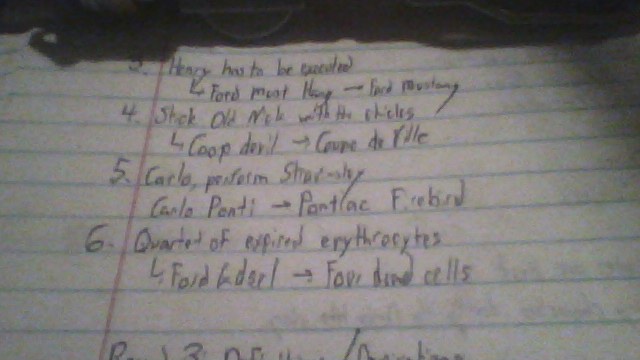 3. Henry has to be executed
↳ Ford must Hang → Ford Mustang
4. Stick Old Nick with the chicles
↳ Coop devil → Coupe de Ville
5. Carlo, perform
Carlo Ponti → Pontiac Firebird
6. Quartet of expired erythrocytes
↳ Ford → Four dead cells